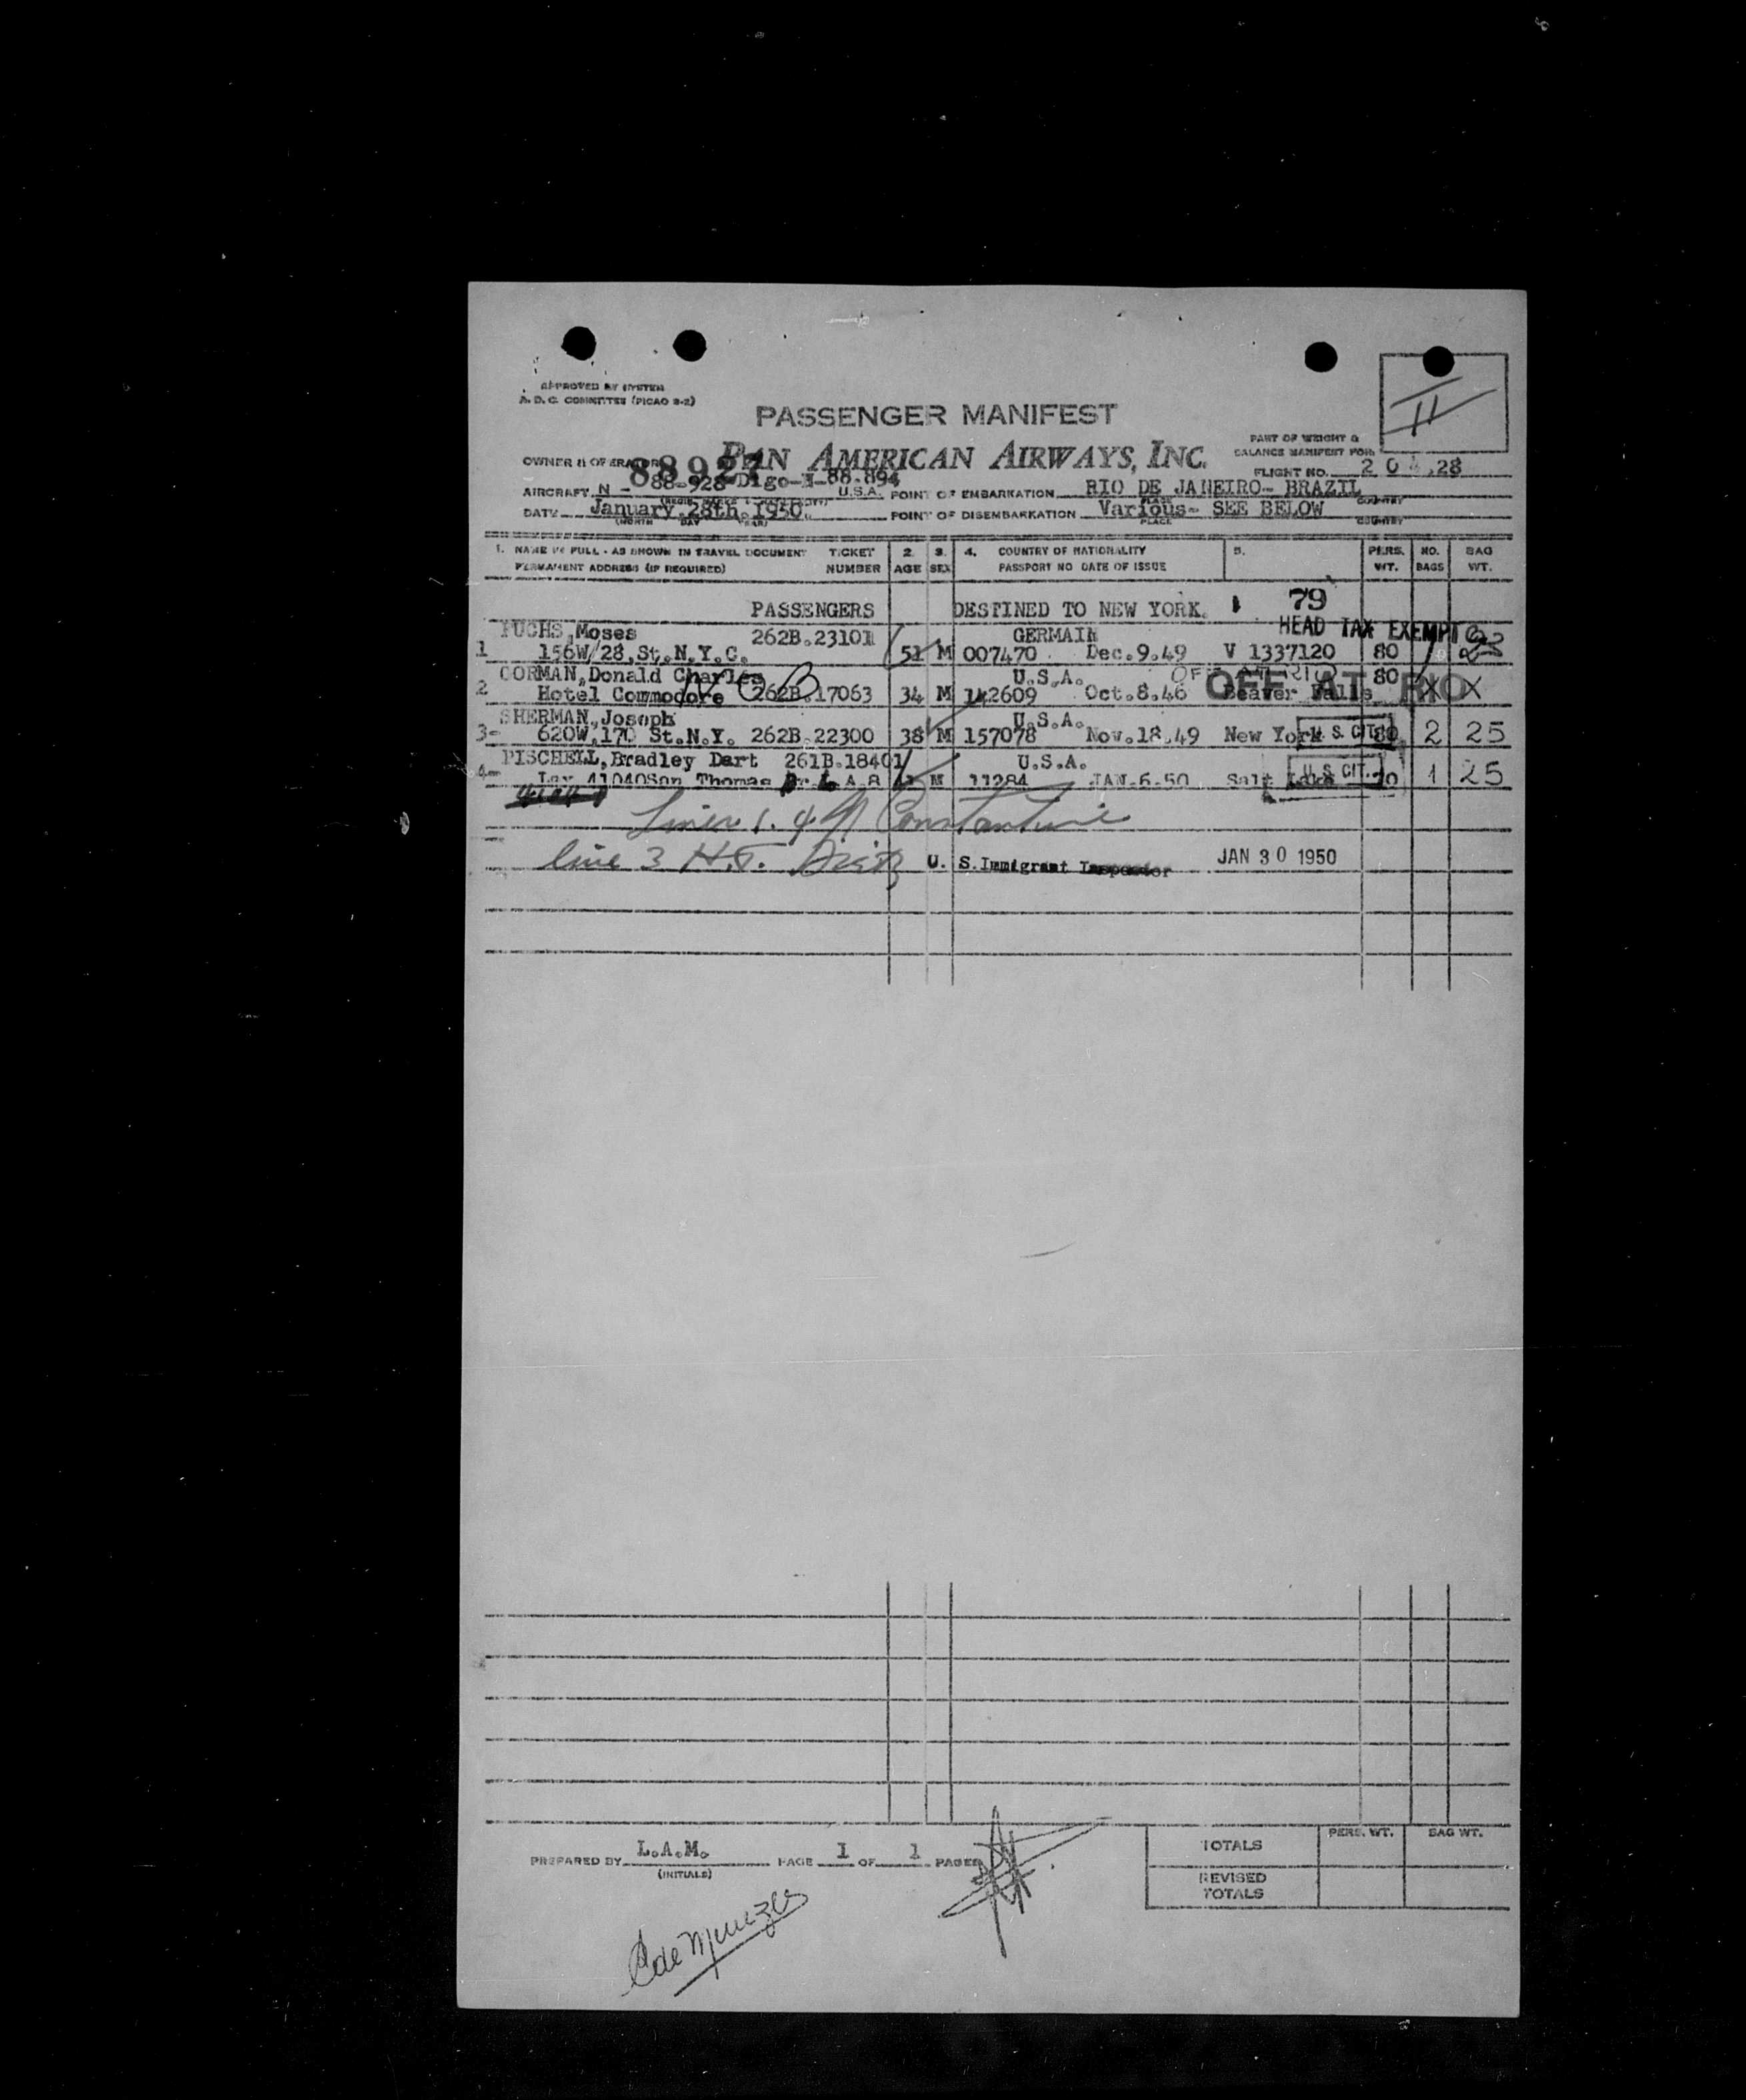 APPROVED BY SYSTEM
A. D. C. COMMITTEE (PICAO 2-2)
PASSENGER MANIFEST
II
OWNER & OPERATOR PAN AMERICAN AIRWAYS, INC.
PART OF WEIGHT &
BALANCE MANIFEST FOR:
88927
FLIGHT NO. 20 .28
AIRCRAFT N - 88-928- Digo-N-88-894 U.S.A. POINT OF EMBARKATION RIO DE JANEIRO- BRAZIL
PLACE COUNTRY
DATE January.28th.1950. POINT OF DISEMBARKATION Various- SEE BELOW
(MONTH DAY YEAR) PLACE COUNTRY
1. NAME IN FULL - AS SHOWN IN TRAVEL DOCUMENT TICKET 2. 3. 4. COUNTRY OF NATIONALITY 5. PERS. NO. BAG
PERMANENT ADDRESS (IF REQUIRED) NUMBER AGE SEX PASSPORT NO DATE OF ISSUE WT. BAGS WT.
PASSENGERS DESTINED TO NEW YORK. 79
HEAD TAX EXEMPT
FUCHS,Moses 262B.23101 GERMAIN
1 156W/28,St.N.Y.C. 51 M 007470 Dec.9.49 V 1337120 80 1
CORMAN,Donald Charles U.S.A. OFF AT RIO 80
2 Hotel Commodore 262B.17063 34 M 142609 Oct.8.46 Beaver Falls X X
OFF AT RIO
SHERMAN,Joseph U.S.A.
3- 620W,170 St.N.Y. 262B.22300 38 M 157078 Nov.18.49 New York U. S. CIT. 80 2 25
PISCHELL,Bradley Dart 261B.18401 U.S.A.
4- 41040San Thomas Dr L A 8 M 11284 JAN.6.50 Salt Lake U. S. CIT. 70 1 25
Lines 1. 4 Constantine
line 3 H.T. U. S. Immigrant Inspector JAN 30 1950
PREPARED BY L.A.M. PAGE 1 OF 1 PAGES
(INITIALS)
PERS. WT. BAG WT.
TOTALS
REVISED
TOTALS